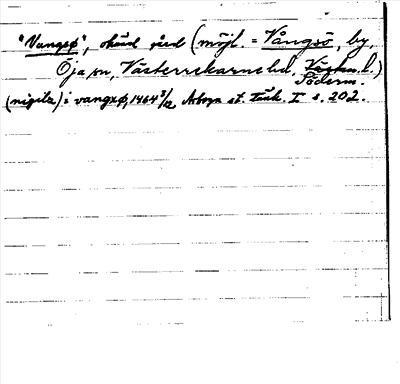 "Vangsø", okänd gård (möjl. = Vångsö, by,
Öja sn, Västerrekarne hd, Söderm. l.)
(nigilz) i vangxø, 1464 3/12 Arboga st. tänk. I s. 202.